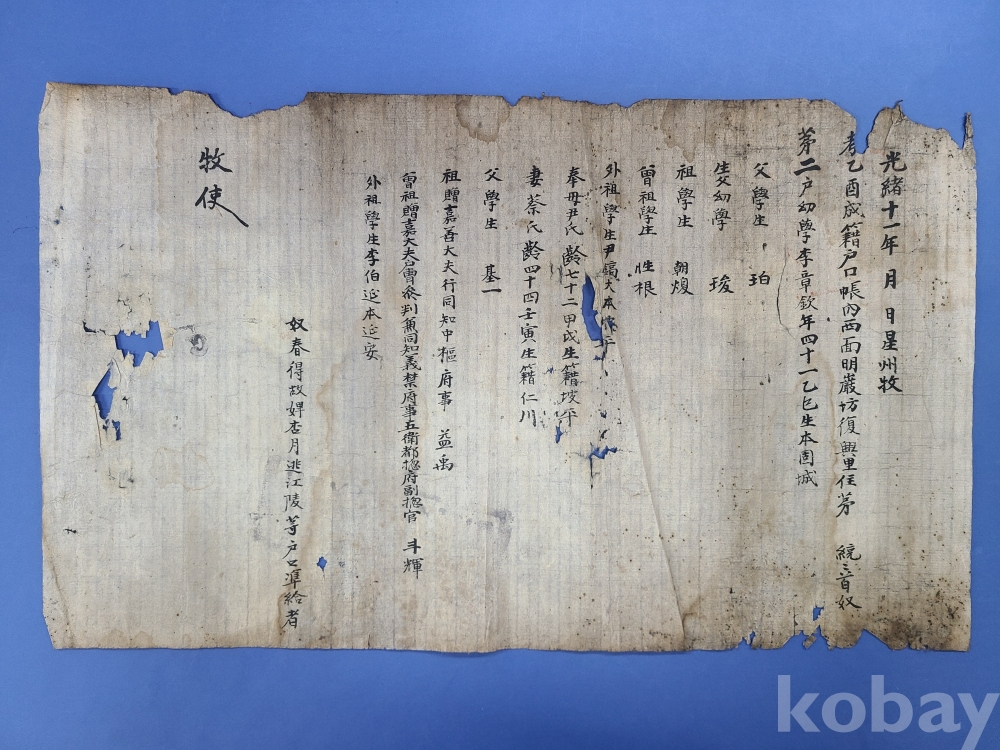 光緒十一年 月 日星州牧
考乙酉成籍戶口帳內西面明巖坊復興里住第 統三首奴
第二戶幼學李章欽年四十一乙巳生本固城
父學生 珀
生父幼學 㻐
祖學生 朝煥
曾祖學生 性根
外祖學生尹 大本 平
奉母尹氏齡七十二甲戌生籍坡平
妻蔡氏齡四十四壬寅生籍仁川
父學生 基一
祖贈嘉善大夫行同知中樞府事 益禹
曾祖贈嘉大夫 曾參判兼同知義禁府事五衛都摠府副摠官 斗輝
外祖學生李伯延本延安
奴春得故婢杏月逃江陵等戶口準給者
牧使
kobay